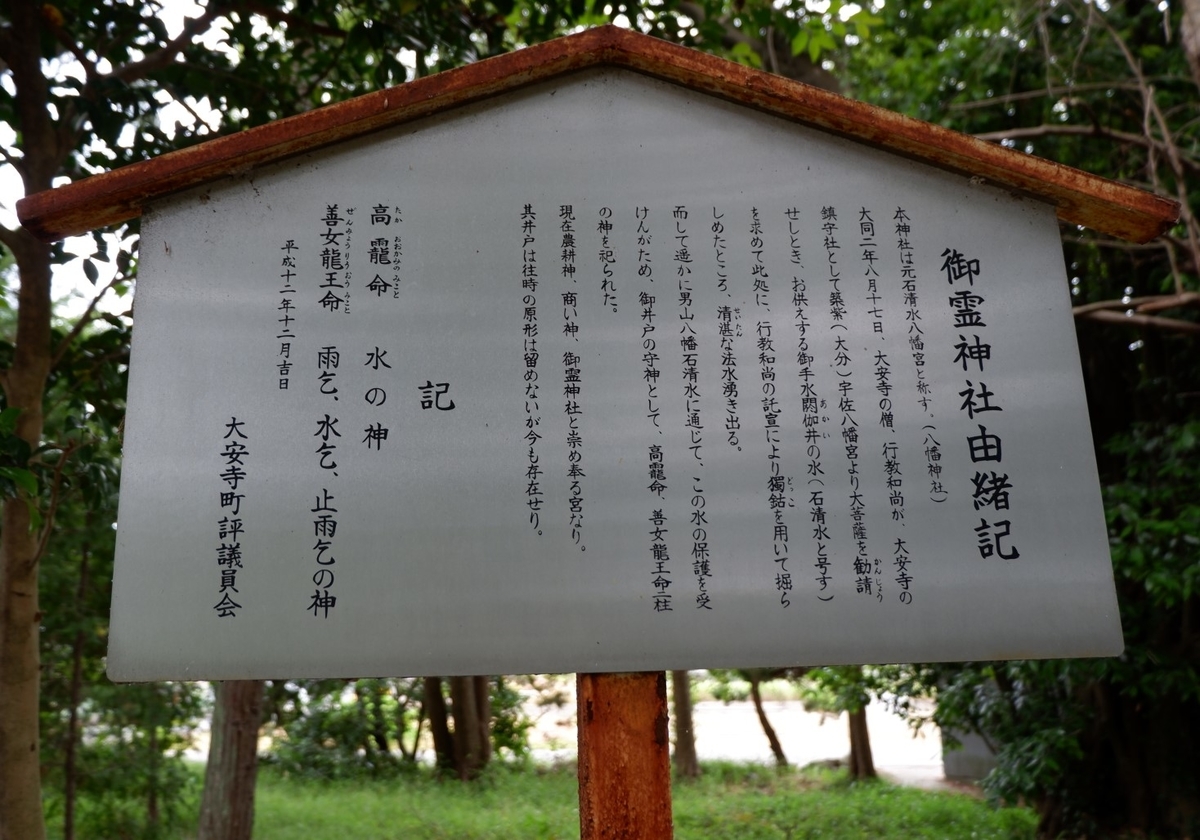 御霊神社由緒記
本神社は元石清水八幡宮と称す。(八幡神社)
大同二年八月十七日、大安寺の僧、行教和尚が、大安寺の
鎮守社として築紫(大分)宇佐八幡宮より大菩薩を勧請
せしとき、お供えする御手水閼伽井の水(石清水と号す)
を求めて此処に、行教和尚の託宣により獨鈷を用いて掘ら
しめたところ、清湛な法水湧き出る。
而して遥かに男山八幡石清水に通じて、この水の保護を受
けんがため、御井戸の守神として、高龗命、善女龍王命二柱
の神を祀られた。
現在農耕神、商い神、御霊神社と崇め奉る宮なり。
其井戸は往時の原形は留めないが今も存在せり。
記
高龗命 水の神
善女龍王命 雨乞、水乞、止雨乞の神
平成十二年十二月吉日
大安寺町評議員会